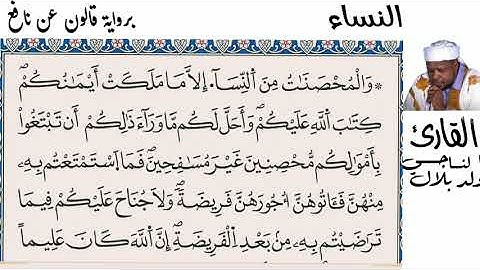 النساء
برواية قالون عن نافع
وَالْمُحْصَنَٰتُ مِنَ اَ۬لنِّسَآءِ اِ۬لَّا مَا مَلَكَتَ اَيْمَٰنُكُمْۖ
كِتَٰبَ اَ۬للَّهِ عَلَيْكُمْۖ وَأَحَلَّ لَكُم مَّا وَرَآءَ ذَٰلِكُمْ أَن تَبْتَغُواْ
بِأَمْوَٰلِكُم مُّحْصِنِينَ غَيْرَ مُسَٰفِحِينَۖ فَمَا اَ۪سْتَمْتَعْتُم بِهِۦ
مِنْهُنَّ فَـَٔاتُوهُنَّ أُجُورَهُنَّ فَرِيضَةٗۖ وَلَا جُنَاحَ عَلَيْكُمْ فِيمَا
تَرَٰضَيْتُم بِهِۦ مِنۢ بَعْدِ اِ۬لْفَرِيضَةِۖ إِنَّ اَ۬للَّهَ كَانَ عَلِيماً
القارئ
الناجي
ولد بلال